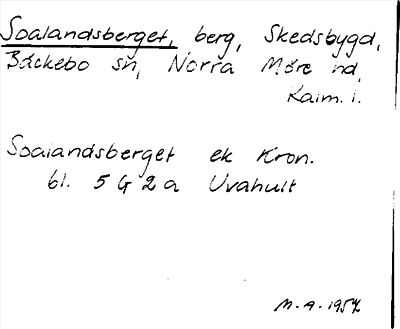 Soalandsberget, berg, Skedsbygd,
Bäckebo sn, Norra Möre hd,
Kalm. l.
Soalandsberget ek Kron.
bl. 5 G 2 a Uvahult
M. A. 1957